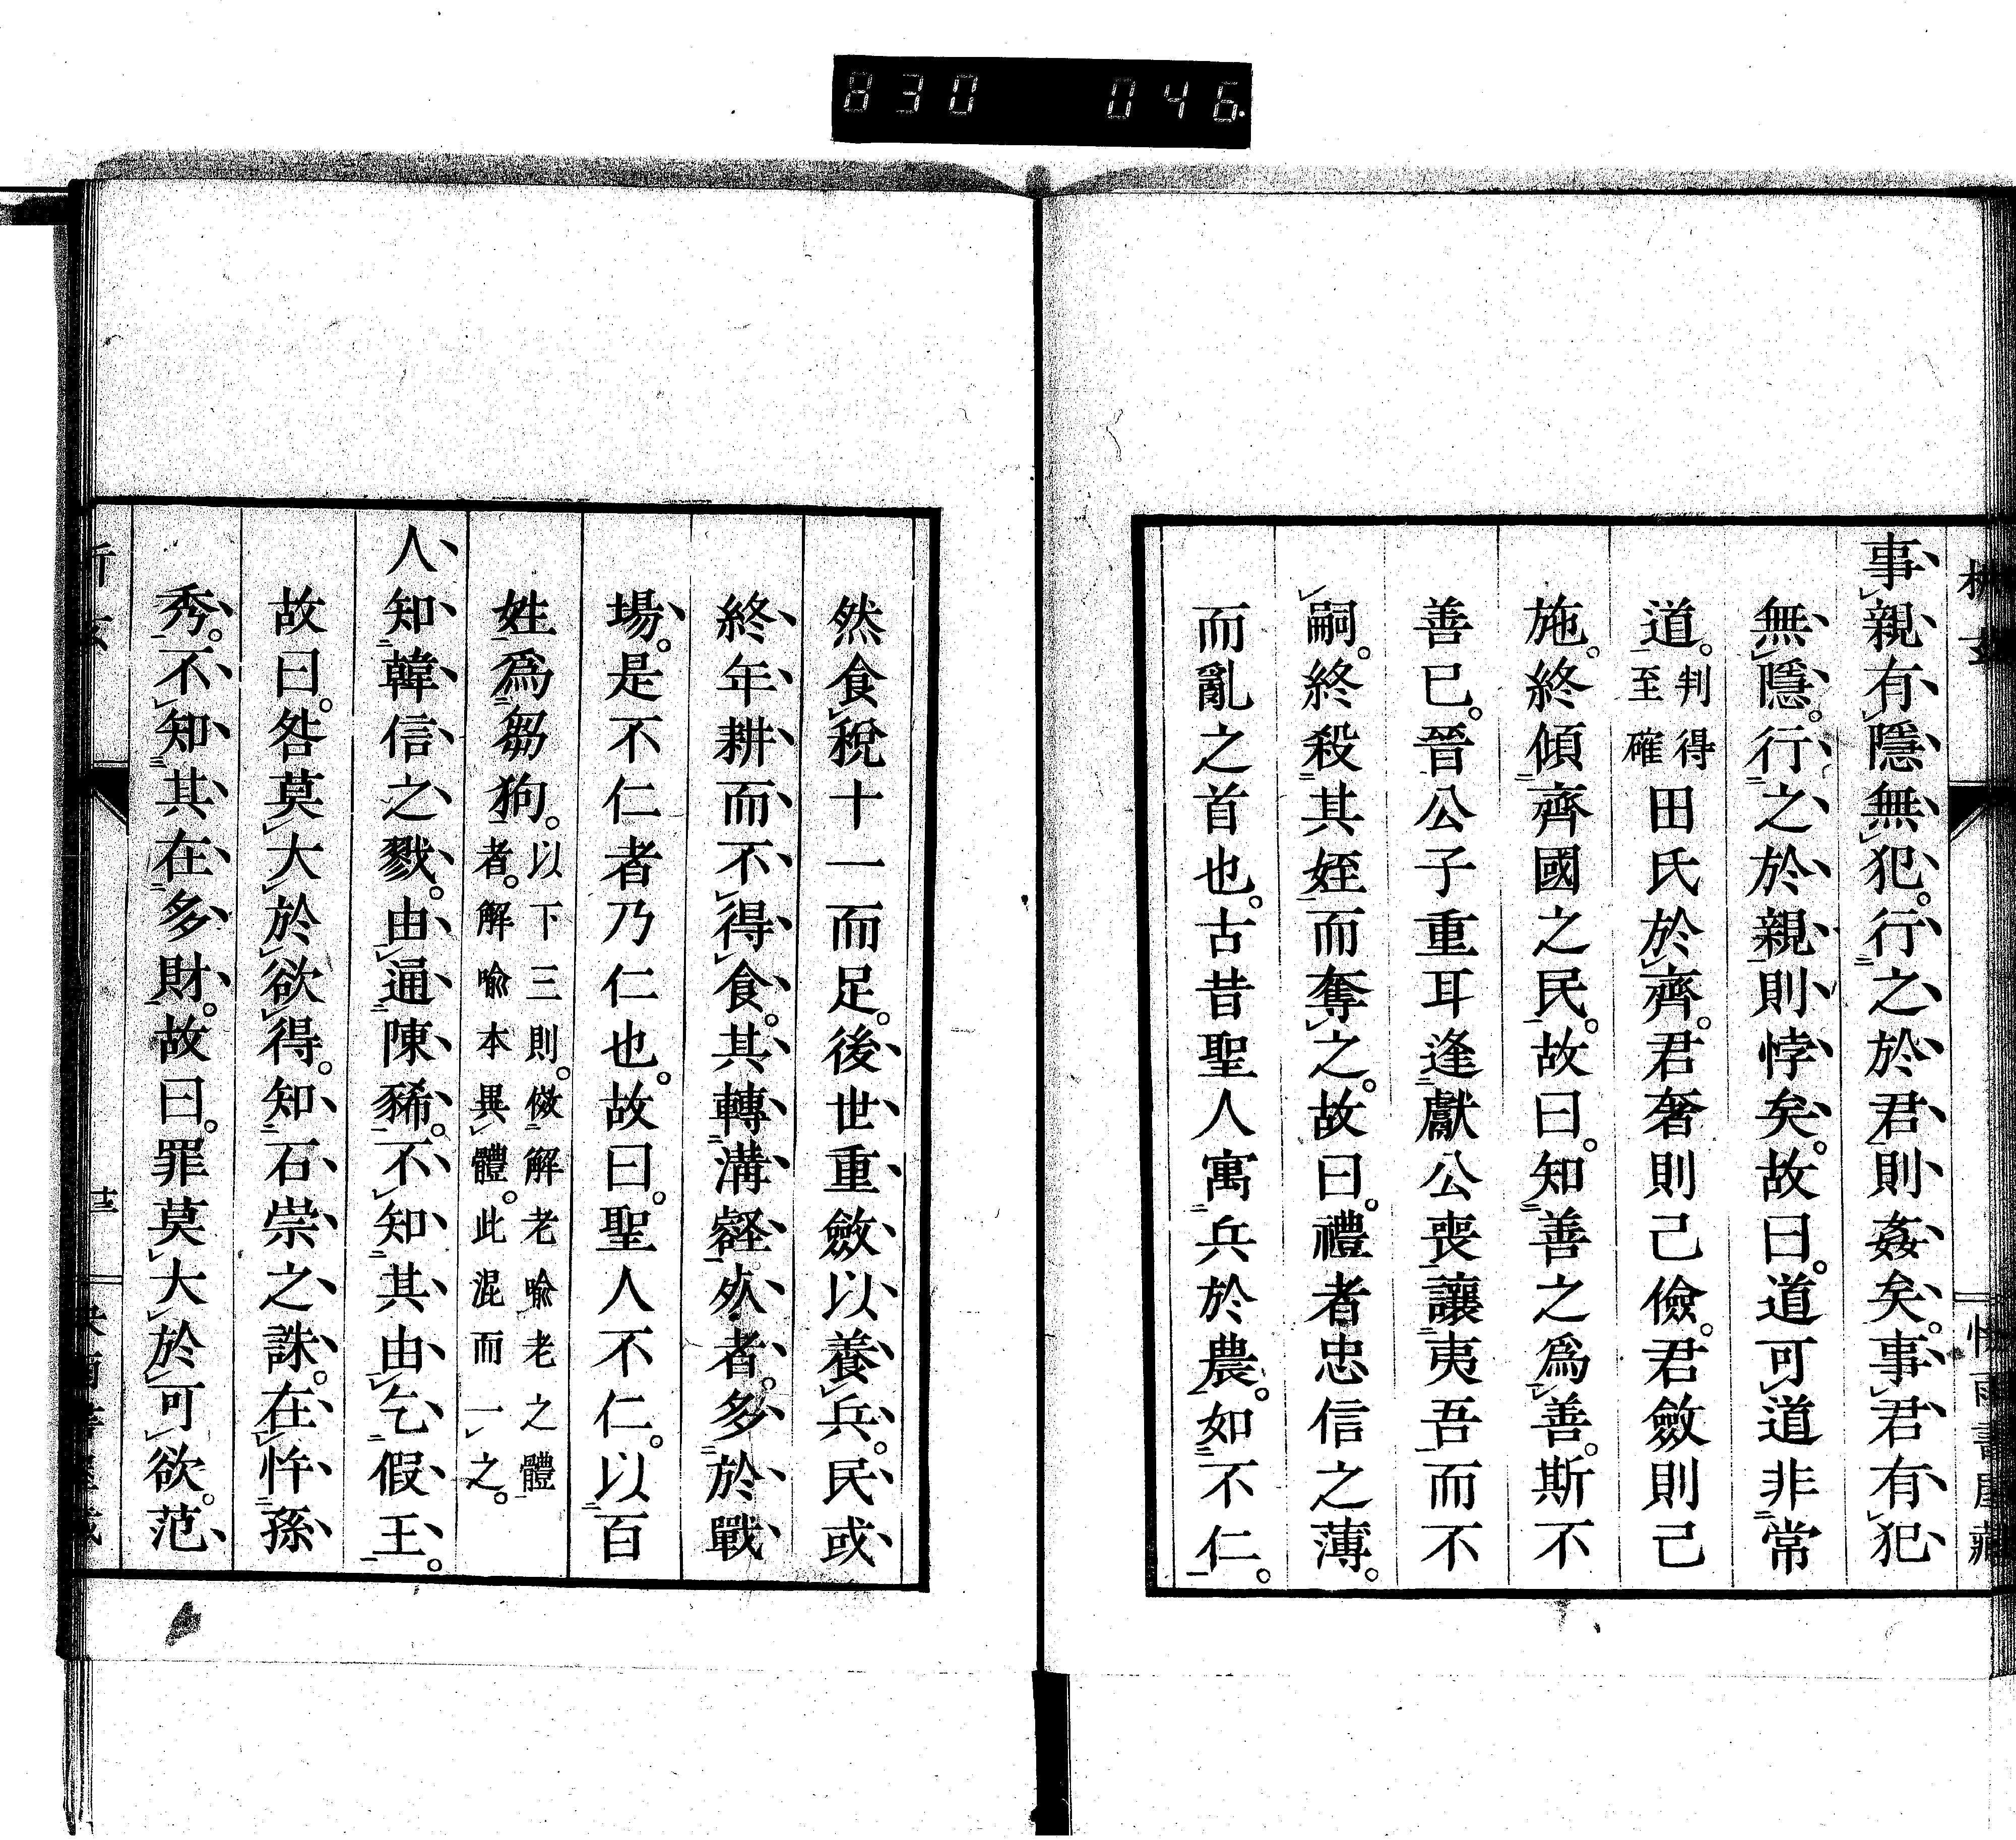 830 046
事親有隱無犯。行之於君則姦矣。事君有犯
無隱。行之於親則悖矣。故曰。道可道非常
道。判得至確田氏於齊。君奢則己儉。君斂則己
施。終傾齊國之民。故曰。知善之爲善。斯不
善已。晉公子重耳逢獻公喪。讓夷吾而不
嗣。終殺其姪而奪之。故曰。禮者忠信之薄。
而亂之首也。古昔聖人寓兵於農。如不仁。
然食稅十一而足。後世重斂以養兵。民或
終年耕而不得食。其轉溝壑。死者。多於戰
場。是不仁者乃仁也。故曰。聖人不仁。以百
姓爲芻狗。以下三則。倣解老喻老之體者。解喻本異體。此混而一之。
人知韓信之戮。由通陳豨。不知其由乞假王。
故曰。咎莫大於欲得。知石崇之誅。在忤孫
秀。不知其在多財。故曰。罪莫大於可欲。范